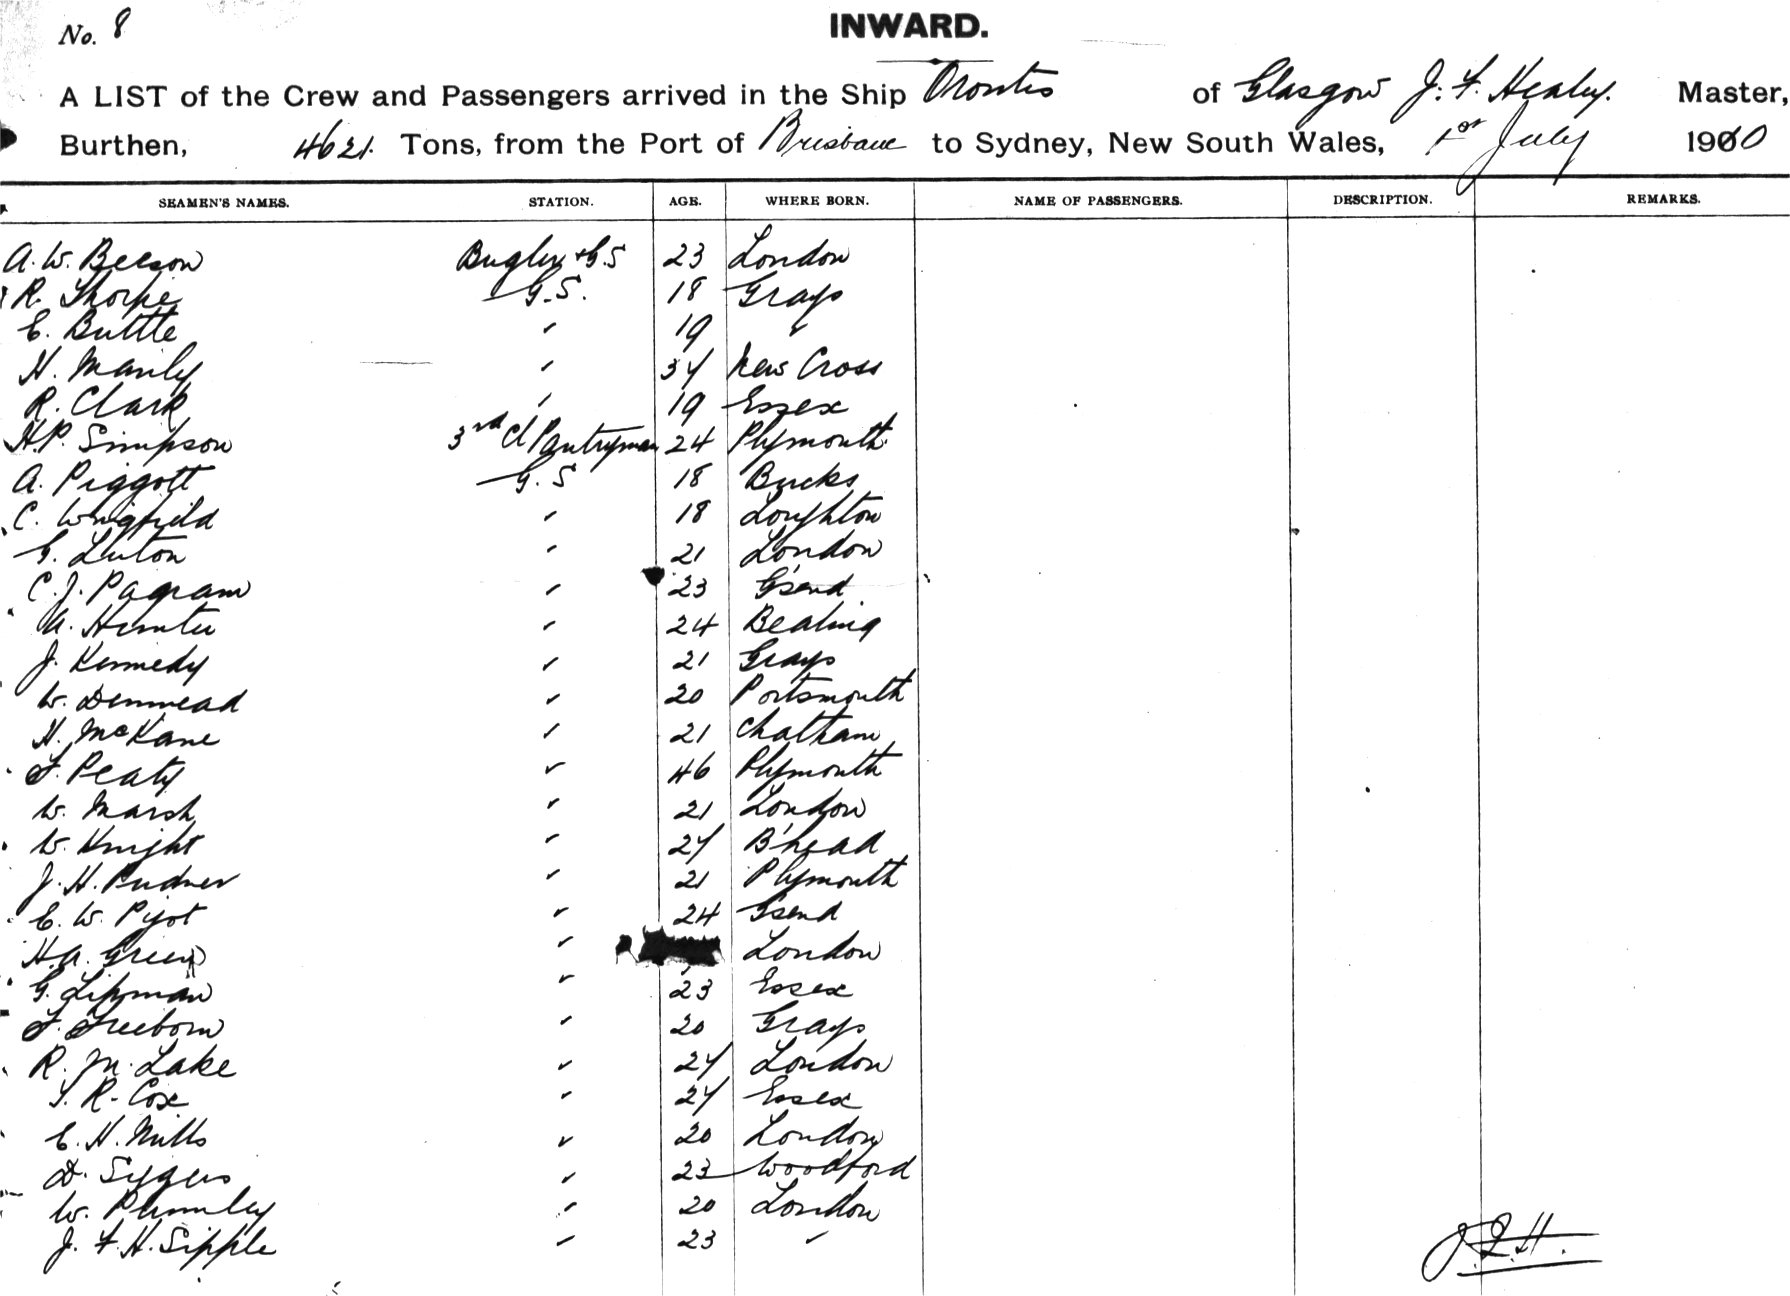 No. 8
INWARD.
A LIST of the Crew and Passengers arrived in the Ship Orontes of Glasgow J. F. Healey. Master,
Burthen, 4621. Tons, from the Port of Brisbane to Sydney, New South Wales, 1st July 1910
SEAMEN'S NAMES. STATION. AGE. WHERE BORN. NAME OF PASSENGERS. DESCRIPTION. REMARKS.
A. W. Beeson Bugler + G.S 23 London
R. Thorpe G.S. 18 Grays
E. Buttle " 19 "
H. Manly " 34 New Cross
R. Clark " 19 Essex
H.P. Simpson 3rd Cl Pantryman 24 Plymouth
A. Piggott G.S 18 Bucks
C. Wingfield " 18 Loughton
G. Luton " 21 London
C. J. Pagram " 23 G'send
A. Hunter " 24 Bealing
J. Kennedy " 21 Grays
W. Denmead " 20 Portsmouth
H. McKane " 21 Chatham
F. Peaty " 46 Plymouth
W. Marsh " 21 London
W. Knight " 24 B'head
J. H. Pudner " 21 Plymouth
E. W. Pijot " 24 G'send
H. A. Green " London
G. Lipman " 23 Essex
F. Freeborn " 20 Grays
R. M. Lake " 24 London
T. R. Cox " 24 Essex
E. H. Mills " 20 London
D. Sygers " 23 Woodford
W. Plumley " 20 London
J. F. H. Sipple " 23 "
J.F.H.